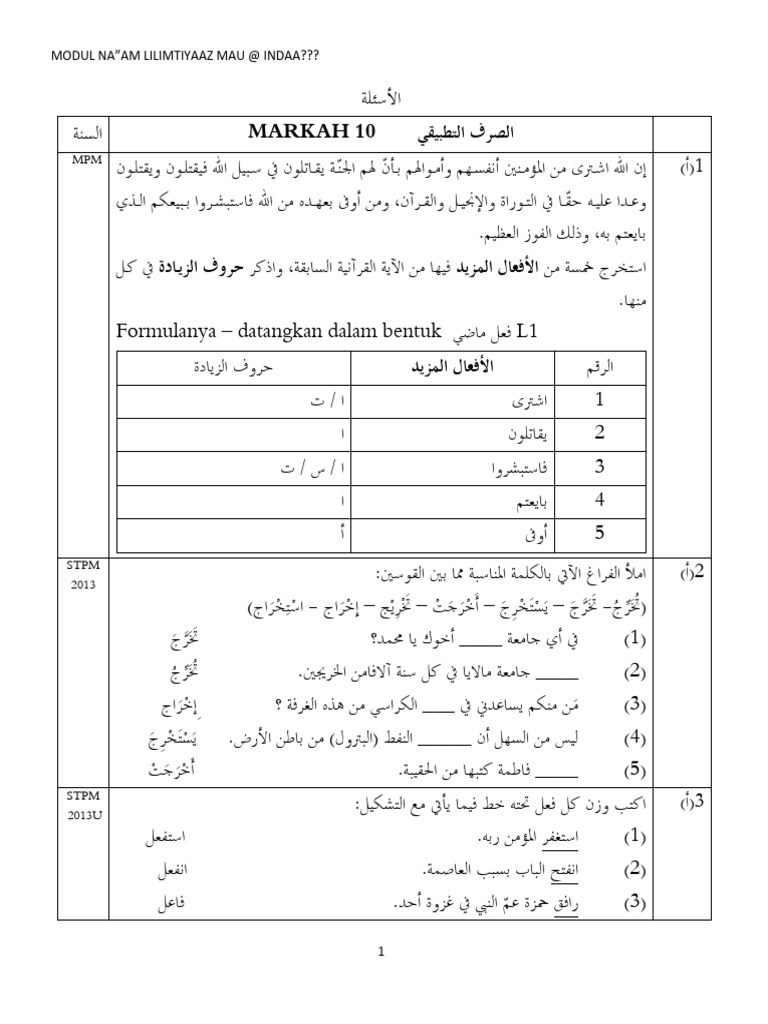 MODUL NA”AM LILIMTIYAAZ MAU @ INDAA???
الأسئلة
الصرف التطبيقي MARKAH 10 السنة
1(أ) إن الله اشترى من المؤمنين أنفسهم وأموالهم بأنّ لهم الجنّة يقاتلون في سبيل الله فيقتلون ويقتلون MPM
وعدا عليه حقّا في التوراة والإنجيل والقرآن، ومن أوفى بعهده من الله فاستبشروا ببيعكم الذي
بايعتم به، وذلك الفوز العظيم.
استخرج خمسة من الأفعال المزيد فيها من الآية القرآنية السابقة، واذكر حروف الزيادة في كل
منها.
Formulanya – datangkan dalam bentuk فعل ماضي L1
الرقم الأفعال المزيد حروف الزيادة
1 اشترى ا / ت
2 يقاتلون ا
3 فاستبشروا ا / س / ت
4 بايعتم ا
5 أوفى أ
2(أ) املأ الفراغ الآتي بالكلمة المناسبة مما بين القوسين: STPM
2013
(تُخَرِّجُ- تَخَرَّجَ – يَسْتَخْرِجَ – أَخْرَجَتْ – تَخْرِيْج – إِخْرَاج - اسْتِخْرَاج)
(1) في أي جامعة _____ أخوك يا محمد؟ تَخَرَّجَ
(2) _____ جامعة مالايا في كل سنة آلافامن الخريجين. تُخَرِّجُ
(3) مَن منكم يساعدني في ____ الكراسي من هذه الغرفة ؟ إِخْرَاج
(4) ليس من السهل أن ______ النفط (البترول) من باطن الأرض. يَسْتَخْرِجَ
(5) _____ فاطمة كتبها من الحقيبة. أَخْرَجَتْ
3(أ) اكتب وزن كل فعل تحته خط فيما يأتي مع التشكيل: STPM
2013U
(1) استغفر المؤمن ربه. استفعل
(2) انفتح الباب بسبب العاصمة. انفعل
(3) رافق حمزة عمّ النبي في غزوة أحد. فاعل
1